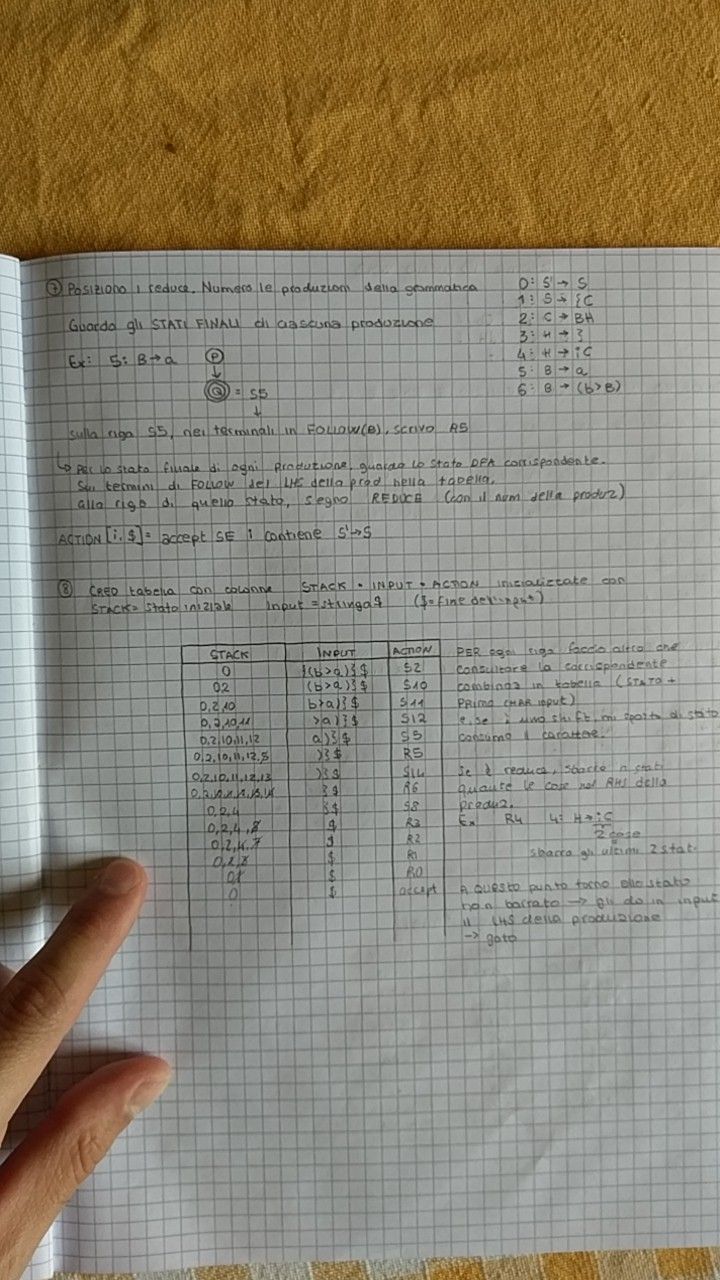 ⑦ Posiziono i reduce. Numero le produzioni della grammatica
0: S' → S
1: S → {C
2: C → BH
3: H → }
4: H → ;C
5: B → a
6: B → (b>B)
Guardo gli STATI FINALI di ciascuna produzione
Ex: 5: B → a P
↓
Q = S5
↓
sulla riga S5, nei terminali in FOLLOW(B), scrivo R5
↳ Per lo stato finale di ogni produzione, guardo lo stato DFA corrispondente.
Sui termini di FOLLOW del LHS della prod nella tabella,
alla riga di quello stato, segno REDUCE (con il num della produz)
ACTION [i, $] = accept SE i contiene S' → S
⑧ CREO tabella con colonne STACK • INPUT • ACTION inizializzate con
STACK = stato iniziale Input = stringa$ ($ = fine dell'input)
STACK INPUT ACTION
0 {(b>a)}$ S2
02 (b>a)}$ S10
0,2,10 b>a)}$ S11
0,2,10,11 >a)}$ S12
0,2,10,11,12 a)}$ S5
0,2,10,11,12,5 )}$ R5
0,2,10,11,12,13 )}$ S14
}$ R6
0,2,4 }$ S8
0,2,4,8 $ R3
0,2,4,7 $ R2
0,2,3 $ R1
01 $ R0
0 $ accept
PER ogni riga faccio altro che
consultare la corrispondente
combinaz in tabella (STATO +
PRIMO CHAR input)
e, se è uno shift, mi sposto di stato
consumo il carattere.
Se è reduce, sbarro n stati
quante le cose nel RHS della
produz.
Ex. R4 4: H → ;C
2 cose
sbarra gli ultimi 2 stati
A questo punto torno allo stato
non barrato → gli do in input
il LHS della produzione
→ goto